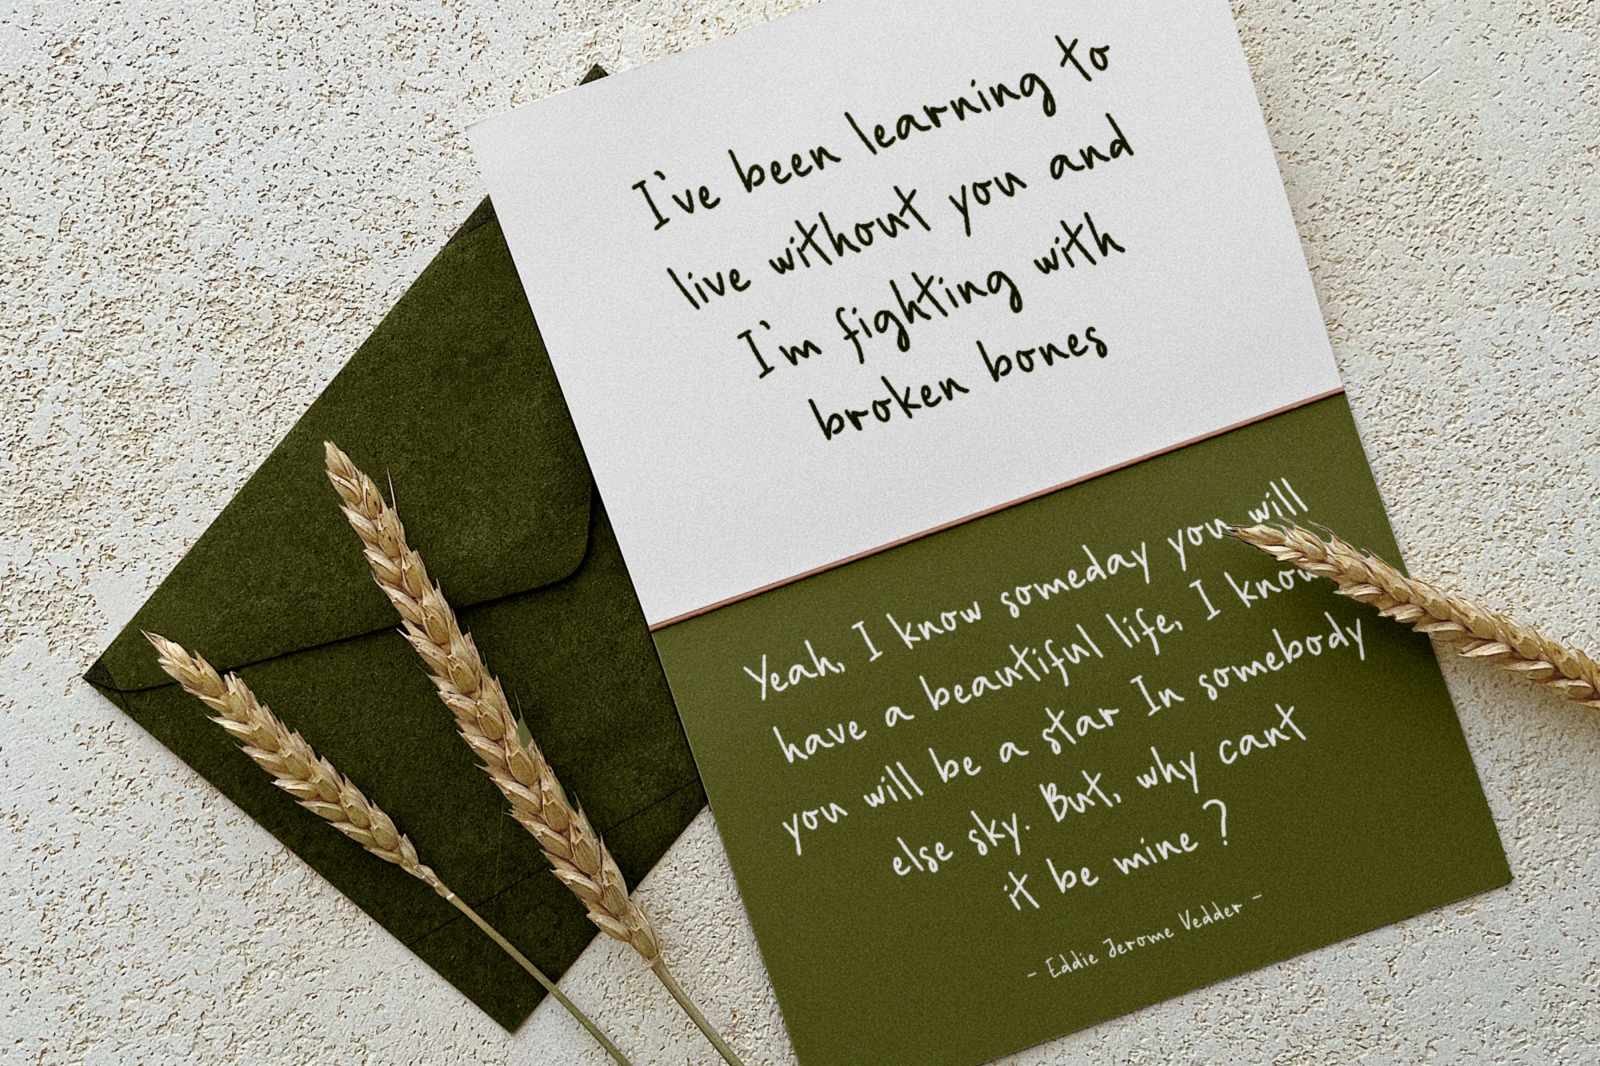 I've been learning to
live without you and
I'm fighting with
broken bones
Yeah, I know someday you will
have a beautiful life, I know
you will be a star In somebody
else sky. But, why cant
it be mine ?
- Eddie Jerome Vedder -